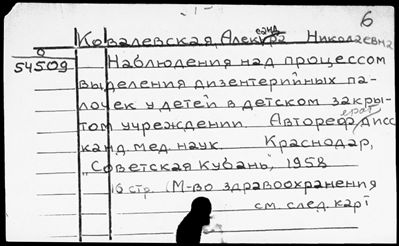 6
Ковалевская, Александра Николаевна
54509
Наблюдения над процессом
выделения дизентерийных па-
лочек у детей в детском закры-
том учреждении. Автореферат дисс
канд. мед. наук. Краснодар,
"Советская Кубань", 1958
16 стр. (М-во здравоохранения
см. след. карт